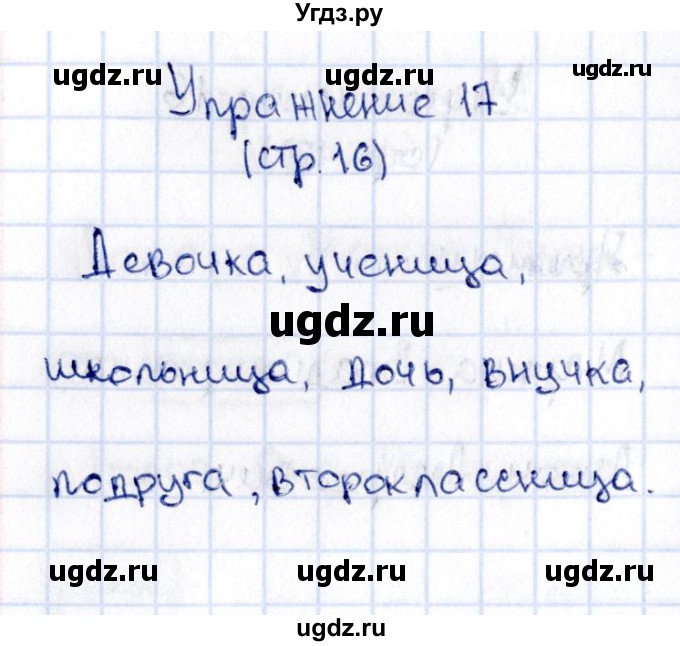 Угдз.ру
ugdz.ru ugdz.ru ugdz.ru
Упражнение 17
(стр. 16)
Девочка, ученица,
ugdz.ru
школьница, дочь, внучка,
подруга, второклассница.
ugdz.ru ugdz.ru ugdz.ru
ugdz.ru